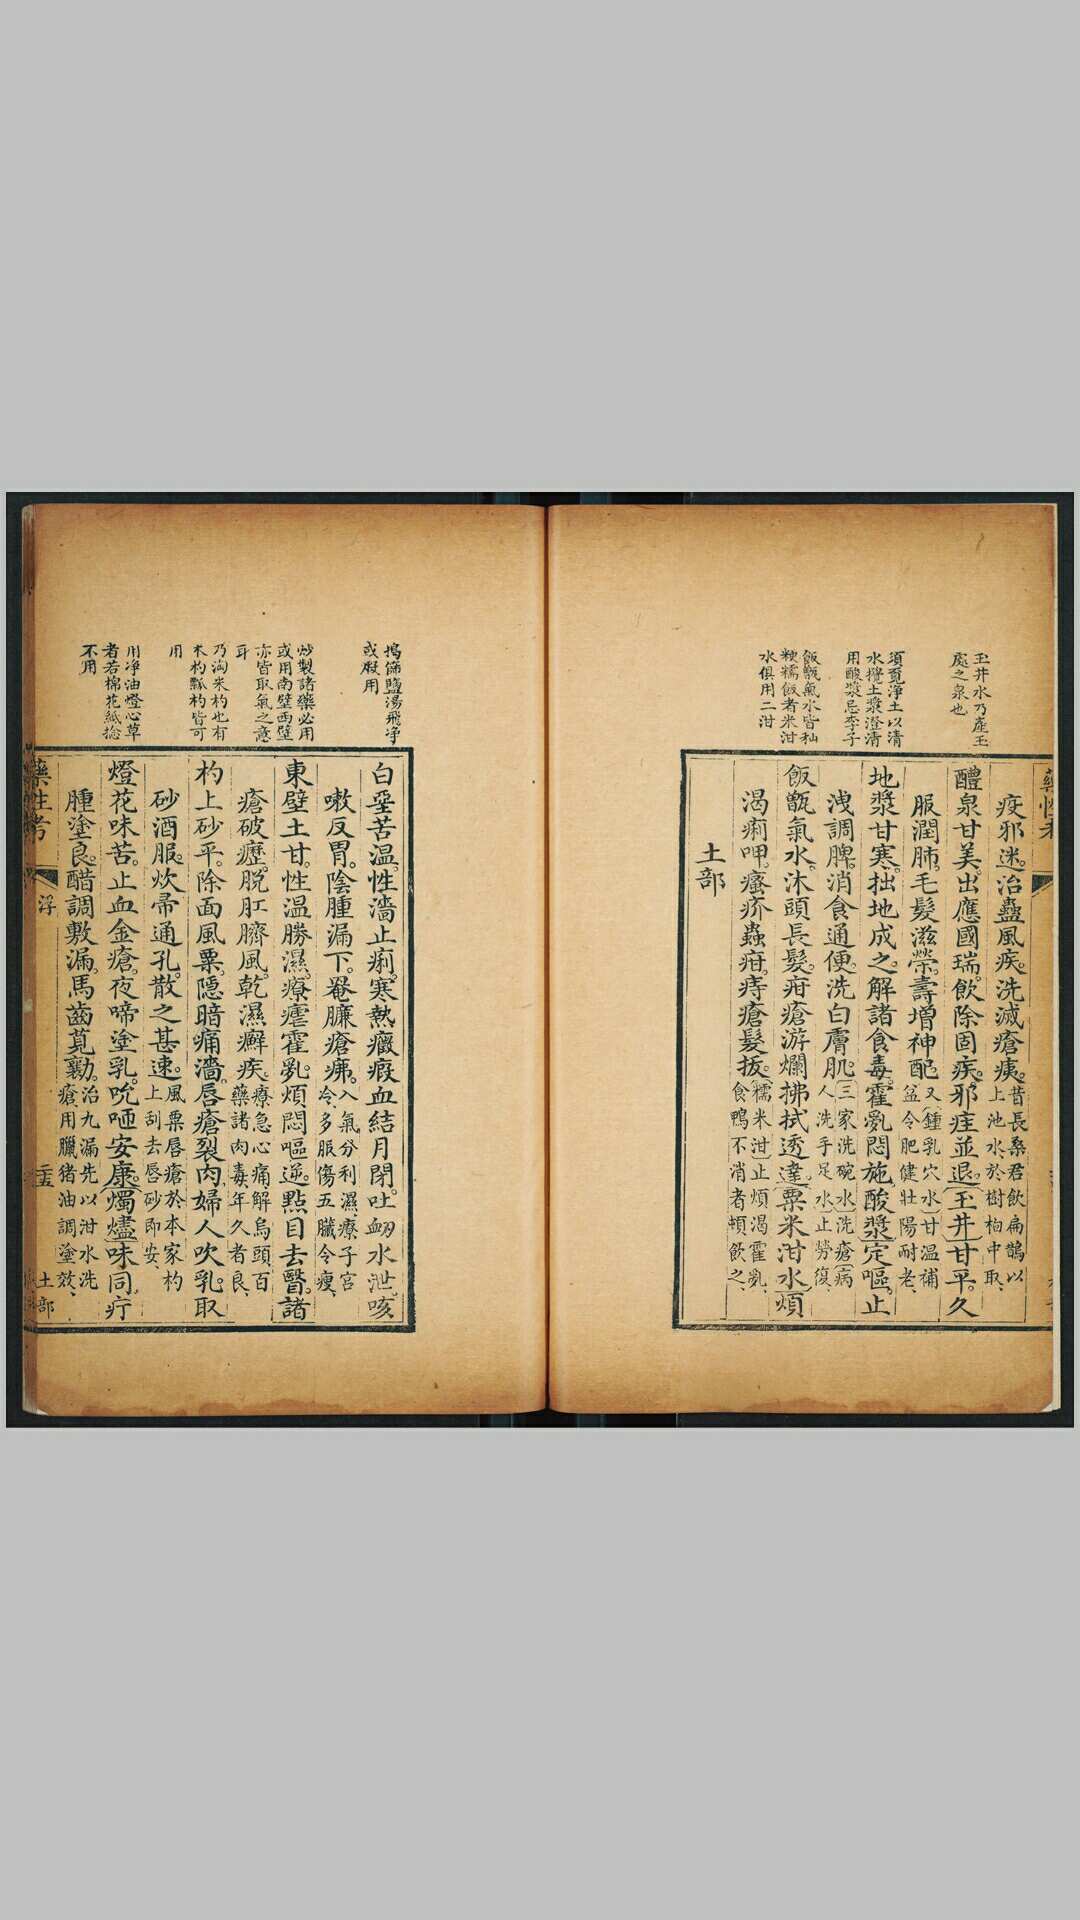 玉井水乃產玉
處之泉也
須覓淨土以清
水攪土漿澄清
用酸漿忌李子
飯甑氣水皆秈
粳糯飯者米泔
水俱用二泔
藥性考
疫邪迷。治蠱風疾。洗滅瘡痍。昔長桑君飲扁鵲以
上池水、於樹枸中取、
醴泉甘美。出應國瑞。飲除固疾。邪疰並退。玉井甘平。久
服潤肺。毛髮滋榮。壽增神配。又鍾乳穴水甘溫補
益令肥健壯陽耐老、
地漿甘寒。拙地成之。解諸食毒。霍亂悶施。酸漿定嘔。止
洩調脾。消食通便。洗白膚肌。三家洗碗水洗瘡病
人洗手足水止勞復、
飯甑氣水。沐頭長髮。疳瘡游爛。拂拭透達。粟米泔水煩
渴痢呷。瘙疥蟲疳。痔瘡髮拔。糯米泔止煩渴霍亂、
食鴨不消者頓飲之
土部
搗篩鹽湯飛淨
或煅用
炒製諸藥必用
或用南壁西壁
亦皆取氣之意
耳
乃淘米杓也有
木杓瓢杓皆可
用
用淨油燈心草
者若棉花紙捻
不用
白堊苦溫。性濇止痢。寒熱癥瘕。血結月閉。吐衂水泄。咳
嗽反胃。陰腫漏下。罨臁瘡疿。入氣分利濕、療子宮
冷、多服傷五臟令瘦、
東壁土甘。性溫勝濕。療瘧霍亂。煩悶嘔逆。點目去翳。諸
瘡破癧。脫肛臍風。乾濕癬疾。療急心痛解烏頭百
藥諸肉毒、年久者良、
杓上砂平。除面風粟。隱暗痛濇。唇瘡裂肉。婦人吹乳。取
砂酒服。炊帚通孔。散之甚速。風粟唇瘡於本家杓
上刮去唇砂即安、
燈花味苦。止血金瘡。夜啼塗乳。吮咂安康。燭燼味同。疔
腫塗良。醋調敷漏。馬齒莧勷。治九漏先以泔水洗
瘡、用臘猪油調塗效、
藥性考
土部